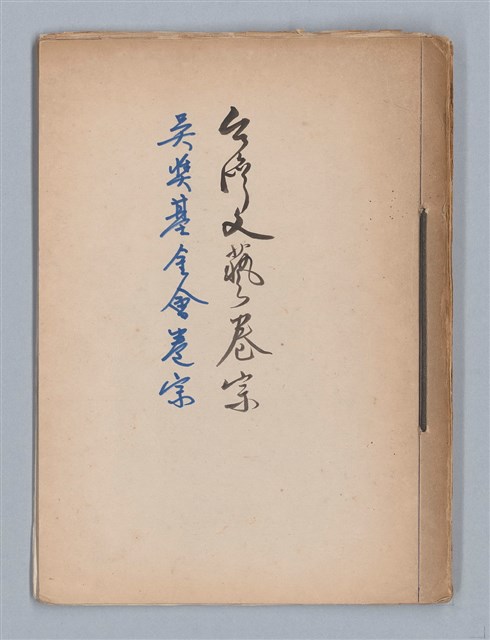 台湾文藝卷宗
吳獎基金會卷宗